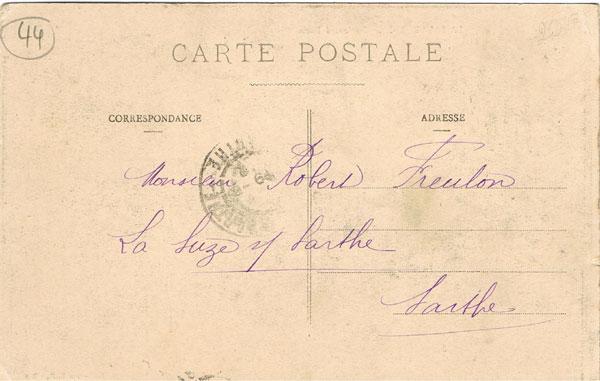 44
CARTE POSTALE
CORRESPONDANCE
ADRESSE
Monsieur Robert Freulon
La Suze s/ Sarthe
Sarthe